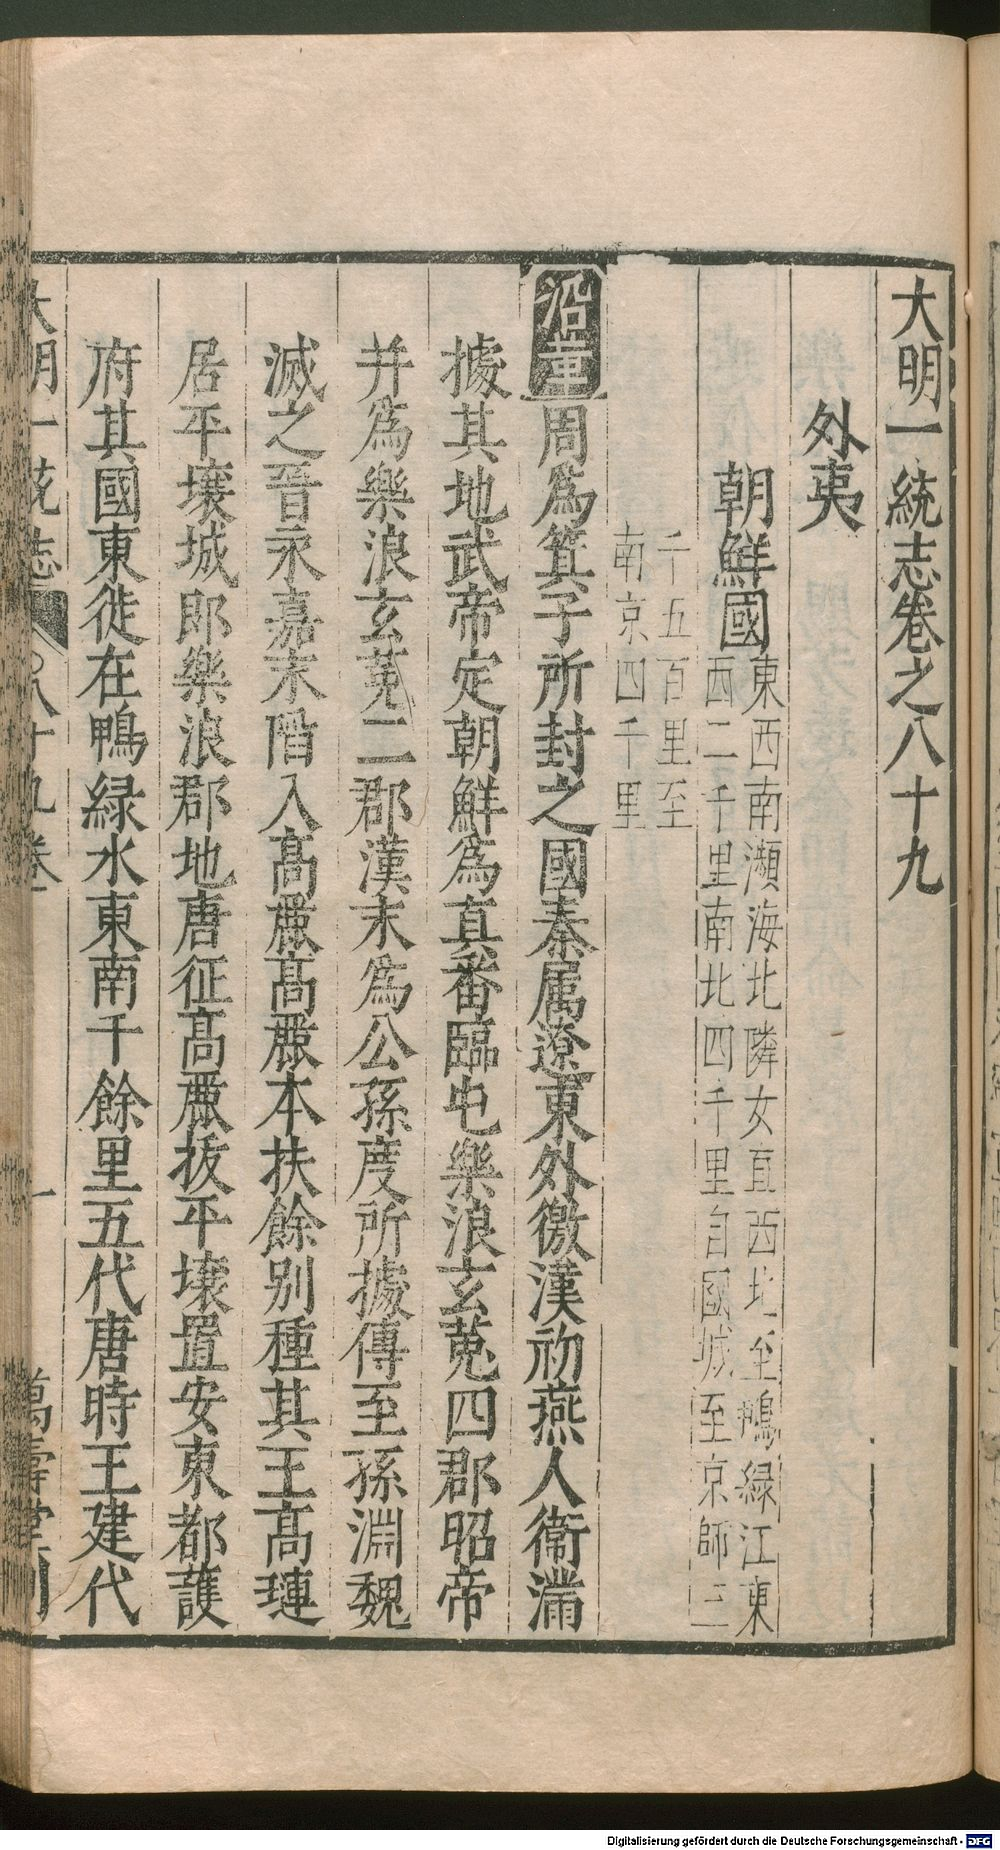 大明一統志卷之八十九
外夷
朝鮮國 東西南瀕海北隣女直西北至鴨綠江東
西二千里南北四千里自國城至京師三
千五百里至
南京四千里
沿革 周爲箕子所封之國秦属遼東外徼漢初燕人衞滿
據其地武帝定朝鮮爲真番臨屯樂浪玄菟四郡昭帝
并爲樂浪玄菟二郡漢末爲公孫度所據傳至孫淵魏
滅之晉永嘉末陷入高麗高麗本扶餘别種其王高璉
居平壤城即樂浪郡地唐征高麗拔平壤置安東都護
府其國東徙在鴨緑水東南千餘里五代唐時王建代
大明一統志 八十九卷 一 萬壽堂刊
Digitalisierung gefördert durch die Deutsche Forschungsgemeinschaft - DFG